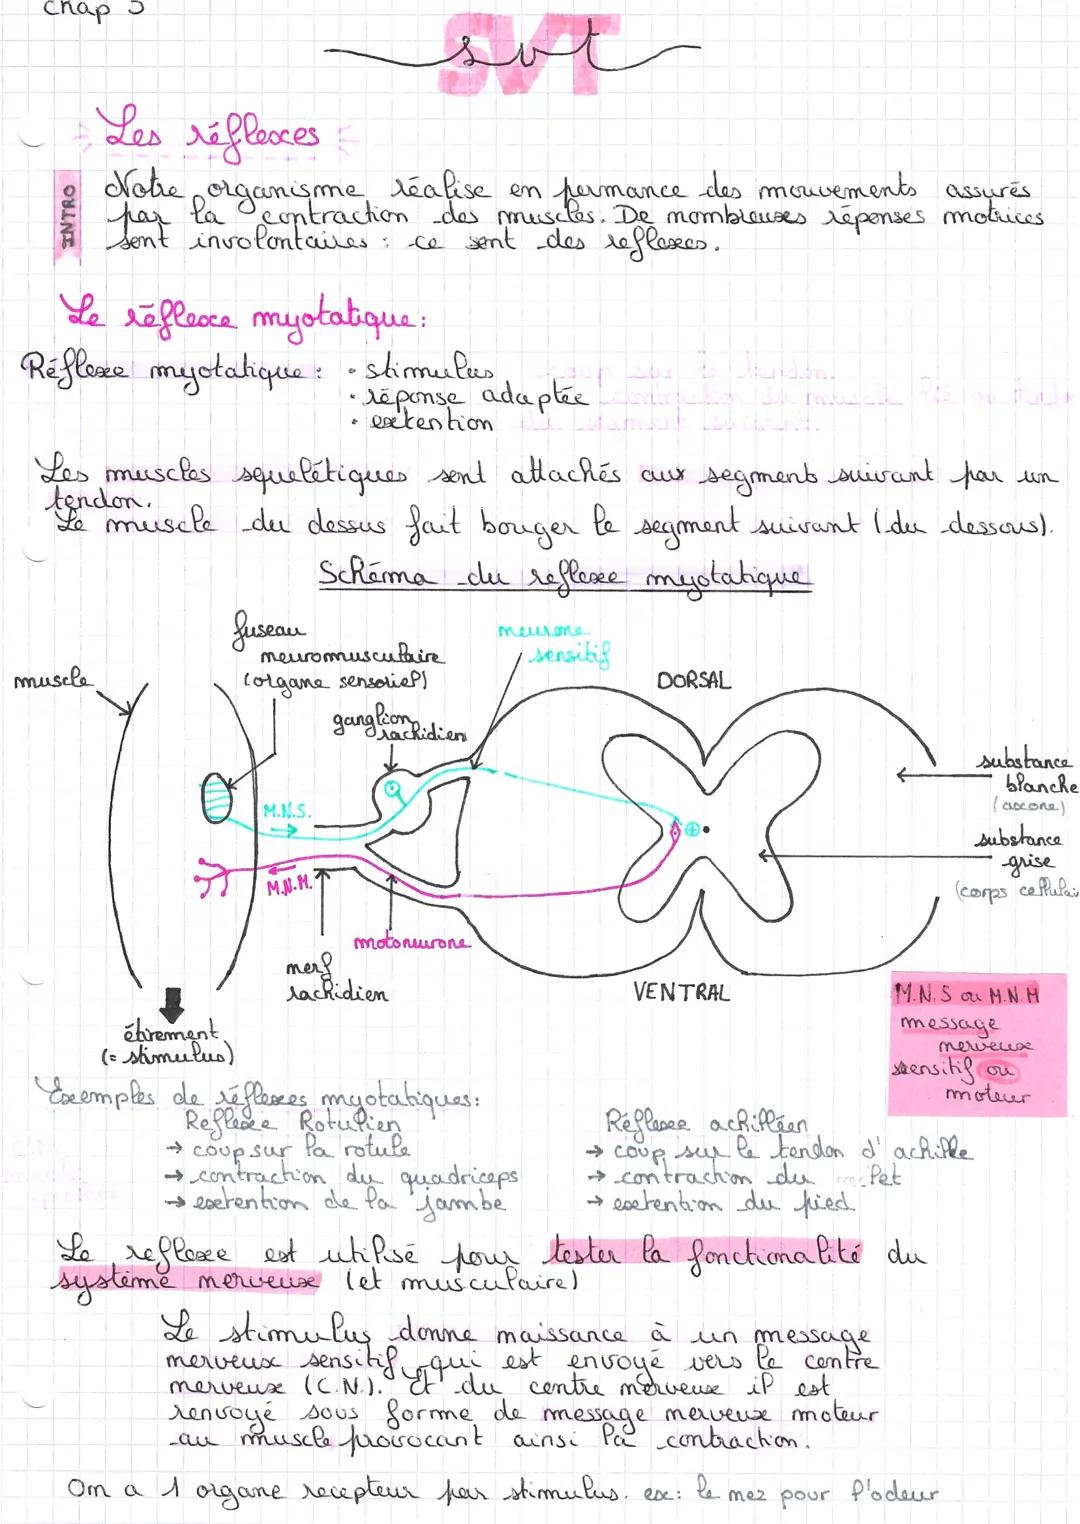 Chap 5
svt
Les réflexes
INTRO
Notre organisme réalise en permance des mouvements assurés
par la contraction des muscles. De nombreuses réponses motrices
sont involontaires : ce sont des reflexes.
Le réflexe myotatique :
Réflexe myotatique : • stimulus
• réponse adaptée
• extention
Les muscles squelétiques sont attachés aux segments suivant par un
tendon.
Le muscle du dessus fait bouger le segment suivant (du dessous).
Schéma du reflexe myotatique
fuseau
neuromusculaire
(organe sensoriel)
neurone
sensitif
muscle
DORSAL
ganglion
rachidien
substance
blanche
(axone)
M.N.S.
substance
grise
(corps cellulai
M.N.M.
motoneurone
nerf
rachidien
VENTRAL
étirement
(= stimulus)
M.N.S ou M.N.M
message
nerveux
sensitif ou
moteur
Exemples de réflexes myotatiques :
Reflexe Rotulien
→ coup sur la rotule
→ contraction du quadriceps
→ extention de la jambe
Réflexe achilléen
→ coup sur le tendon d'achille
→ contraction du mollet
→ extention du pied
Le reflexe est utilisé pour tester la fonctionalité du
système nerveux (et musculaire)
Le stimulus donne naissance à un message
nerveux sensitif, qui est envoyé vers le centre
nerveux (C.N.). Et du centre nerveux il est
renvoyé sous forme de message nerveux moteur
au muscle provocant ainsi la contraction.
On a 1 organe recepteur par stimulus. ex : le nez pour l'odeur